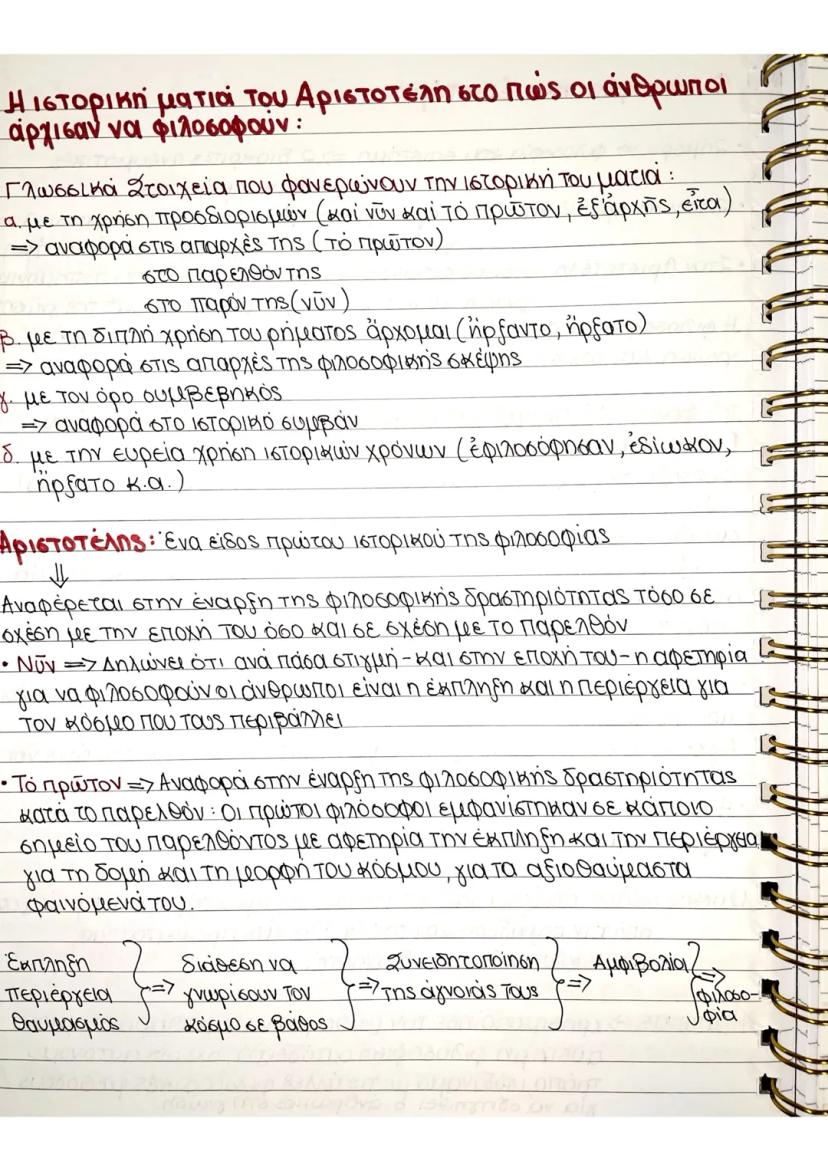 Η ιστορική ματιά του Αριστοτέλη στο πώς οι άνθρωποι
άρχισαν να φιλοσοφούν:
Γλωσσικά Στοιχεία που φανερώνουν την ιστορική του ματιά:
α. με τη χρήση προσδιορισμών (καί νῦν καί τό πρῶτον, ἐξ ἀρχῆς, εἶτα)
=> αναφορά στις απαρχές της (τό πρῶτον)
στο παρελθόν της
στο παρόν της (νῦν)
β. με τη διπλή χρήση του ρήματος ἄρχομαι (ἤρξαντο, ἤρξατο)
=> αναφορά στις απαρχές της φιλοσοφικής σκέψης
γ. με τον όρο συμβεβηκός
=> αναφορά στο ιστορικό συμβάν
δ. με την ευρεία χρήση ιστορικών χρόνων (ἐφιλοσόφησαν, ἐδίωκον,
ἤρξατο κ.α.)
Αριστοτέλης: Ένα είδος πρώτου ιστορικού της φιλοσοφίας
⇓
Αναφέρεται στην έναρξη της φιλοσοφικής δραστηριότητας τόσο σε
σχέση με την εποχή του όσο και σε σχέση με το παρελθόν
• Νῦν => Δηλώνει ότι ανά πάσα στιγμή - και στην εποχή του - η αφετηρία
για να φιλοσοφούν οι άνθρωποι είναι η έκπληξη και η περιέργεια για
τον κόσμο που τους περιβάλλει
• Τό πρῶτον => Αναφορά στην έναρξη της φιλοσοφικής δραστηριότητας
κατά το παρελθόν: Οι πρώτοι φιλόσοφοι εμφανίστηκαν σε κάποιο
σημείο του παρελθόντος με αφετηρία την έκπληξη και την περιέργεια
για τη δομή και τη μορφή του κόσμου, για τα αξιοθαύμαστα
φαινόμενά του.
Έκπληξη
περιέργεια
θαυμασμός
=>
διάθεση να
γνωρίσουν τον
κόσμο σε βάθος
=>
Συνειδητοποίηση
της άγνοιάς τους
=>
Αμφιβολία
=>
φιλοσο-
φία